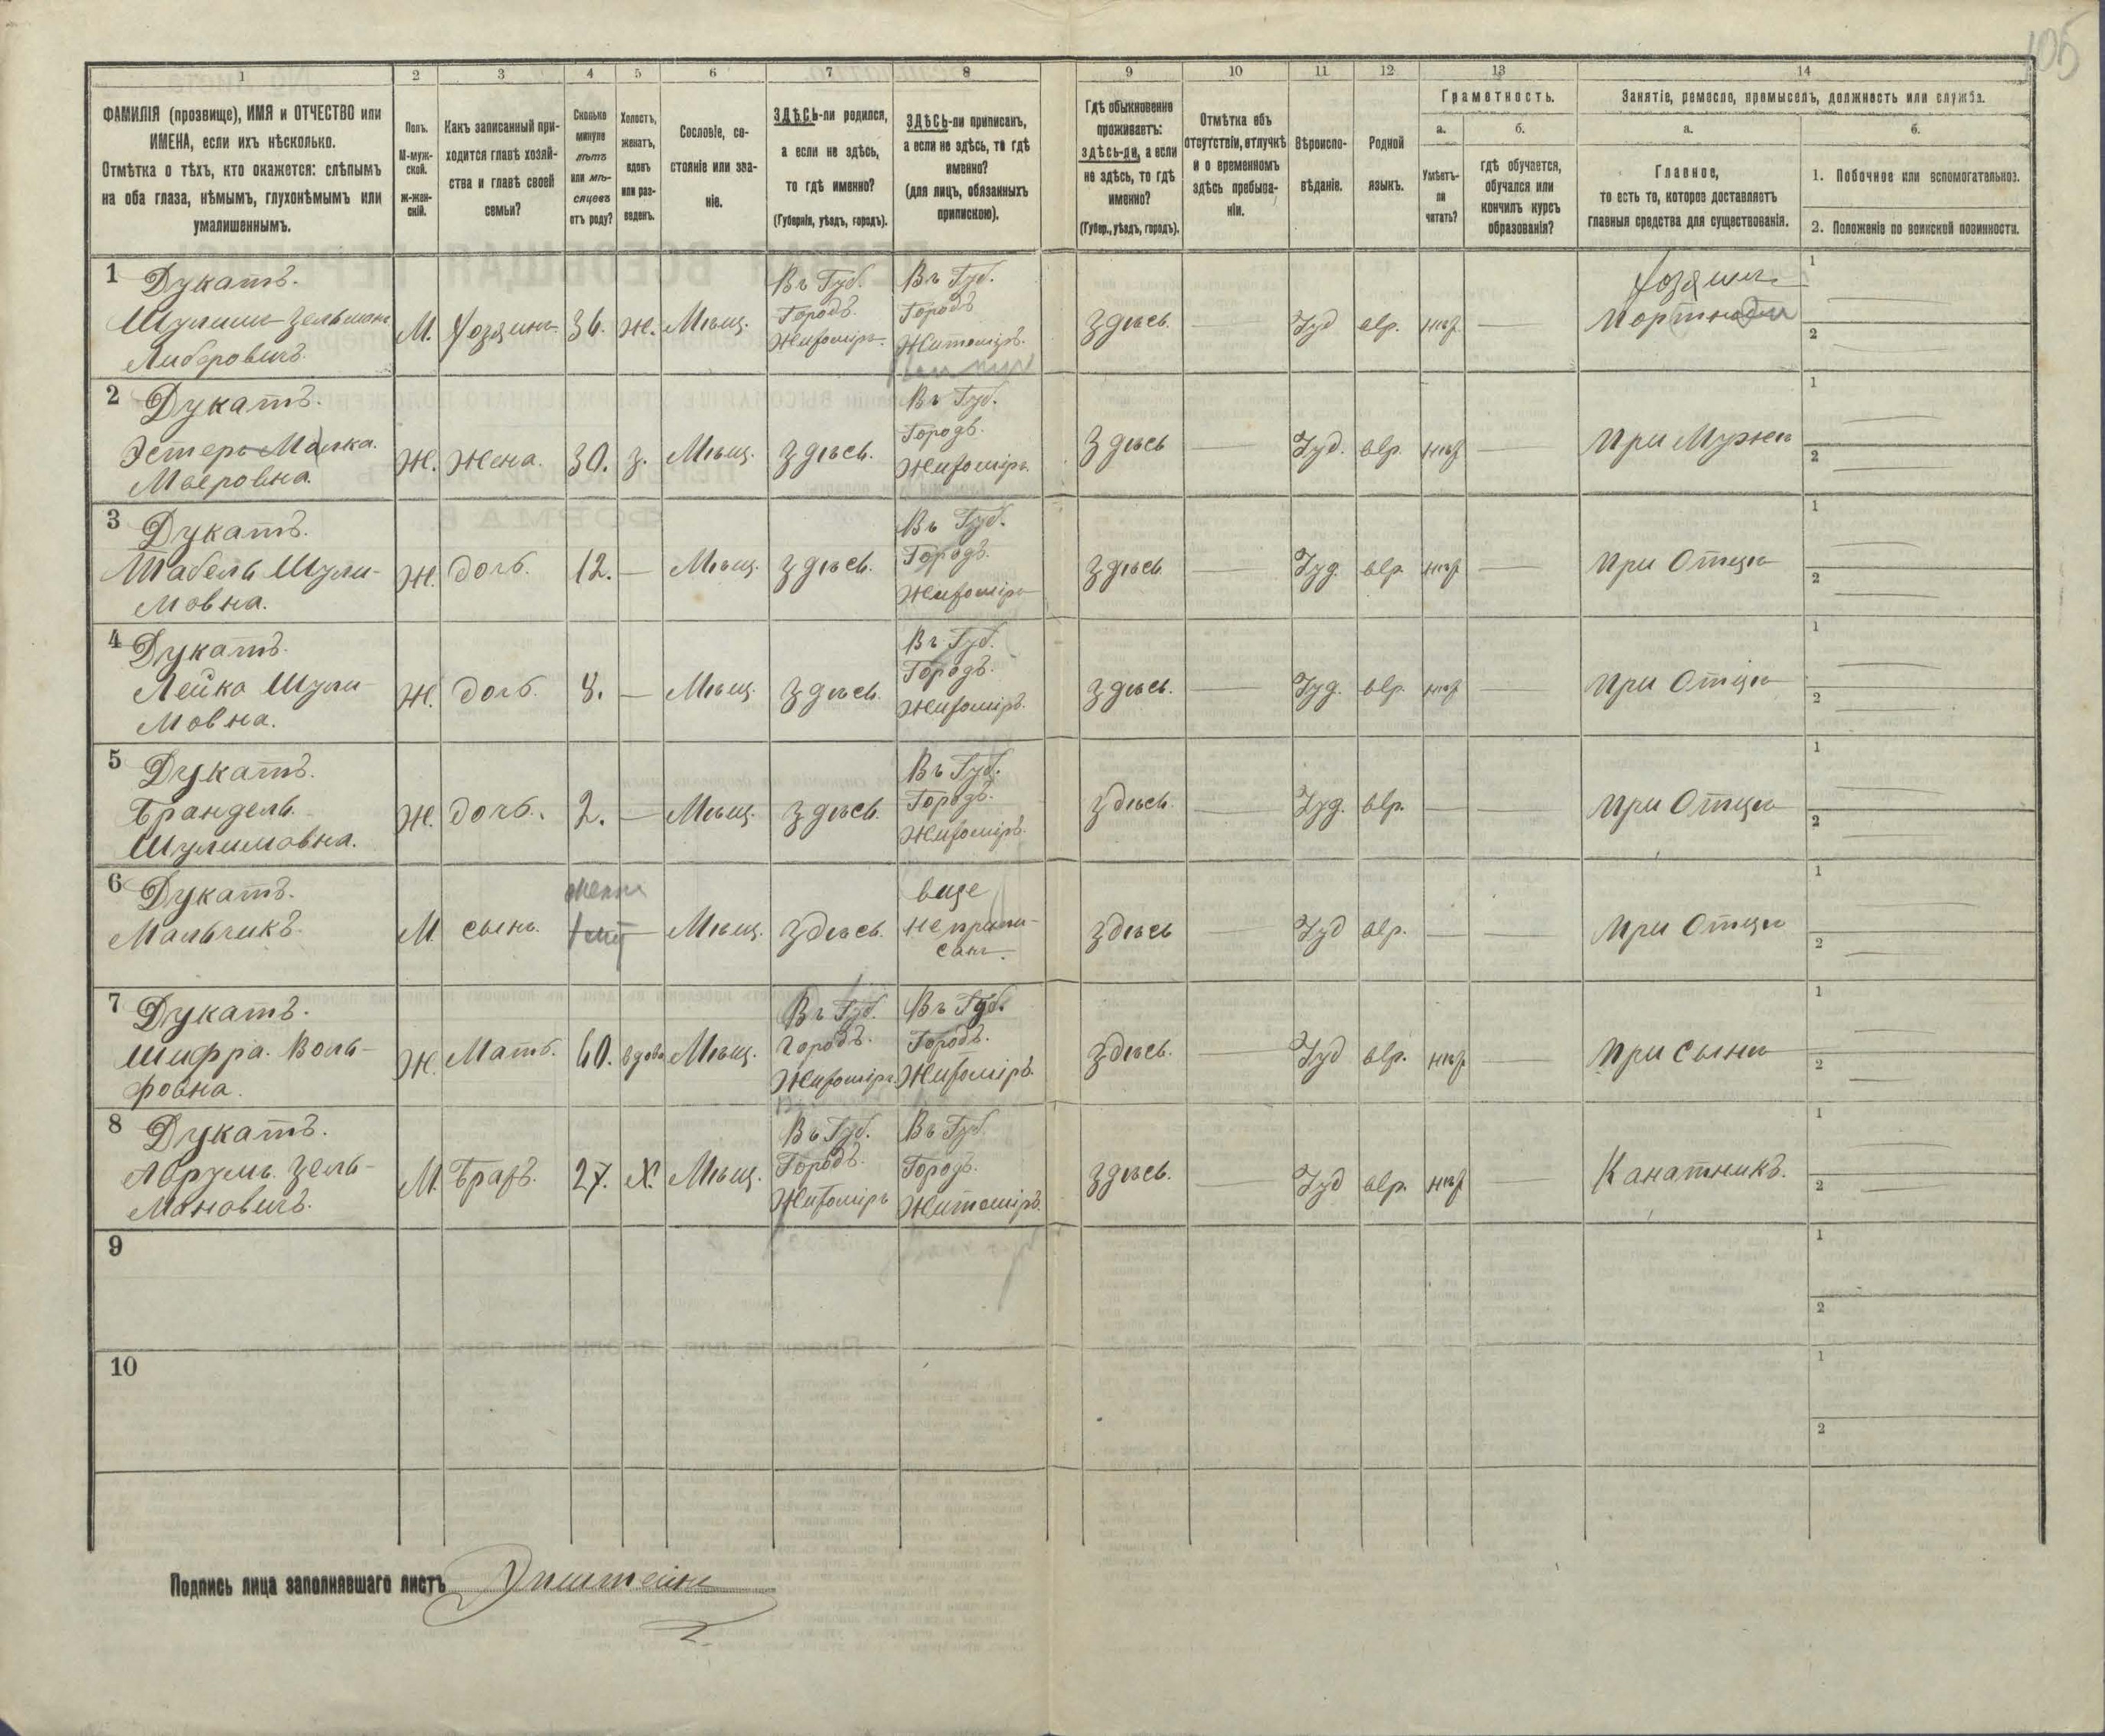 105
1 2 3 4 5 6 7 8 9 10 11 12 13 14
ФАМИЛІЯ (прозвище), ИМЯ и ОТЧЕСТВО или
ИМЕНА, если ихъ нѣсколько.
Отмѣтка о тѣхъ, кто окажется: слѣпымъ
на оба глаза, нѣмымъ, глухонѣмымъ или
умалишеннымъ.
Полъ.
М-муж-
ской.
Ж-жен-
скій.
Какъ записанный при-
ходится главѣ хозяй-
ства и главѣ своей
семьи?
Сколько
минуло
лѣтъ
или мѣ-
сяцевъ
отъ роду?
Холостъ,
женатъ,
вдовъ
или раз-
веденъ.
Сословіе, со-
стояніе или зва-
ніе.
ЗДѢСЬ-ли родился,
а если не здѣсь,
то гдѣ именно?
(Губернія, уѣздъ, городъ).
ЗДѢСЬ-ли приписанъ,
а если не здѣсь, то гдѣ
именно?
(для лицъ, обязанныхъ
припискою).
Гдѣ обыкновенно
проживаетъ:
здѣсь-ли, а если
не здѣсь, то гдѣ
именно?
(Губер., уѣздъ, городъ).
Отмѣтка объ
отсутствіи, отлучкѣ
и о временномъ
здѣсь пребыва-
ніи.
Вѣроиспо-
вѣданіе.
Родной
языкъ.
Грамотность.
а.
Умѣетъ-
ли
читать?
б.
гдѣ обучается,
обучался или
кончилъ курсъ
образованія?
Занятіе, ремесло, промыселъ, должность или служба.
а.
Главное,
то есть то, которое доставляетъ
главныя средства для существованія.
б.
1. Побочное или вспомогательное.
2. Положеніе по воинской повинности.
1 Дукатъ.
Шулимъ Зельманъ
Либеровичъ.
М. Хозяинъ. 36. Ж. Мѣщ.
Въ Губ.
Городѣ
Житоміръ.
Въ Губ.
Городѣ
Житоміръ.
Здѣсь. — Іуд евр. нѣт —
Хозяинъ
1
2
2 Дукатъ.
Эстеръ Малка.
Мееровна.
Ж. Жена. 30. З. Мѣщ. Здѣсь.
Въ Губ.
Городѣ.
Житоміръ.
Здѣсь — Іуд. евр. нѣт — При Мужѣ
1
2
3 Дукатъ.
Табель Шули-
мовна.
Ж. дочь. 12. — Мѣщ. Здѣсь.
Въ Губ.
Городѣ.
Житоміръ
Здѣсь. — Іуд. евр. нѣт — При Отцѣ
1
2
4 Дукатъ.
Лейка Шули-
мовна.
Ж. дочь. 8. — Мѣщ. Здѣсь.
Въ Губ.
Городѣ.
Житоміръ.
Здѣсь. — Іуд. евр. нѣт — При Отцѣ
1
2
5 Дукатъ.
Брандель.
Шулимовна.
Ж. дочь. 2. — Мѣщ. Здѣсь.
Въ Губ.
Городѣ.
Житоміръ.
Здѣсь. — Іуд. евр. — — При Отцѣ
1
2
6 Дукатъ.
Мальчикъ.
М. сынъ. — Мѣщ. Здѣсь.
еще
не припи-
санъ.
Здѣсь — Іуд евр. — — При Отцѣ
1
2
7 Дукатъ.
Шифра. Воль-
фовна.
Ж. Мать. 60. вдова Мѣщ.
Въ Губ.
Городѣ.
Житоміръ.
Въ Губ.
Городѣ.
Житоміръ.
Здѣсь. — Іуд евр. нѣт — При Сынѣ
1
2
8 Дукатъ.
Абрумъ. Зель-
мановичъ.
М. Братъ. 27. Х. Мѣщ.
Въ Губ.
Городѣ.
Житоміръ
Въ Губ
Городѣ.
Житоміръ.
Здѣсь. — Іуд евр. нѣт — Канатникъ.
1
2
9
1
2
10
1
2
Подпись лица заполнявшаго листъ